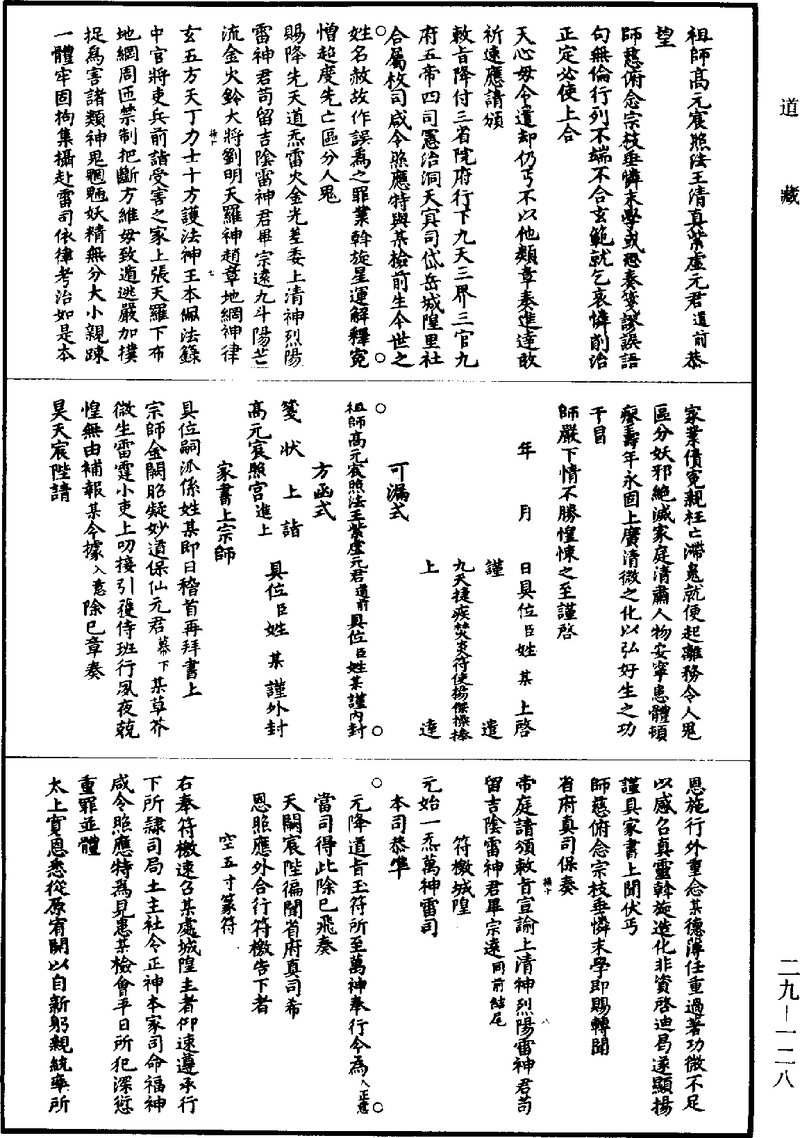 道藏
祖師高元宸照法王清真紫虛元君道前恭
望
師慈俯念宗枝垂憐末學或恐奏箋謬誤語
句無倫行列不端不合玄範就乞哀憐削治
正定必使上合
天心毋令遣却仍丐不以他類章奏進達敢
祈速應請頒
敕旨降付三省院府行下九天三界三官九
府五帝四司憲治洞天宾司岱岳城隍里社
合屬枚司咸令照應特與某檢前生今世之
姓名赦故作誤為之罪業斡旋星運解釋冤
憎超度先亡區分人鬼
賜降先天道炁雷火金光差委上清神烈陽
雷神君苟留吉陰雷神君畢宗遠九斗陽芒
流金火鈴大將劉明天羅神趙章地網神律
玄五方天丁力士十方護法神王本佩法籙
中官將吏兵前詣受害之家上張天羅下布
地網周匝禁制把斷方維毋致逃逃嚴加撲
捉為害諸類神鬼魍魎妖精無分大小親踈
一體牢固拘集攝赴雷司依律考治如是本
家業債冤親枉亡滯鬼就便起離務令人鬼
區分妖邪絶滅家庭清肅人物安寧患體頓
痊壽年永固上廣清微之化以弘好生之功
干冒
師嚴下情不勝惶悚之至謹啓
年 月 日具位臣姓 某 上啓
謹 遣
九天捷疾焚炎符使揚傑操捧
上 達
可漏式
祖師高元宸照法王紫虛元君道前具位臣姓某謹內封
方函式
箋 狀 上 詣
高元宸照宮進上 具位臣姓 某 謹外封
家書上宗師
具位嗣派係姓某即日稽首再拜書上
宗師金闕昭凝妙道保仙元君幕下某草芥
微生雷霆小吏上叨接引獲侍班行夙夜兢
惶無由補報某今據入意除已章奏
昊天宸陛請
恩施行外重念某德薄任重過著功微不足
以感召真靈斡旋造化非資啓迪曷遂顯揚
謹具家書上聞伏丐
師慈俯念宗枝垂憐末學即賜轉聞
省府真司保奏
帝庭請頒敕旨宣諭上清神烈陽雷神君苟
留吉陰雷神君畢宗遠同前結尾
符檄城隍
元始一炁萬神雷司
本司恭準
元降道旨玉符所至萬神奉行今為入正意
當司得此除已飛奏
天闕宸陛徧聞省府真司希
恩照應外合行符檄告下者
空五寸篆符
右奉符檄速召某處城隍主者仰速遵承行
下所隸司局土主社令正神本家司命福神
咸令照應特為見患某檢會平日所犯深愆
重罪並體
太上寶恩悉從原宥開以自新躬親統率所
二九—一二八